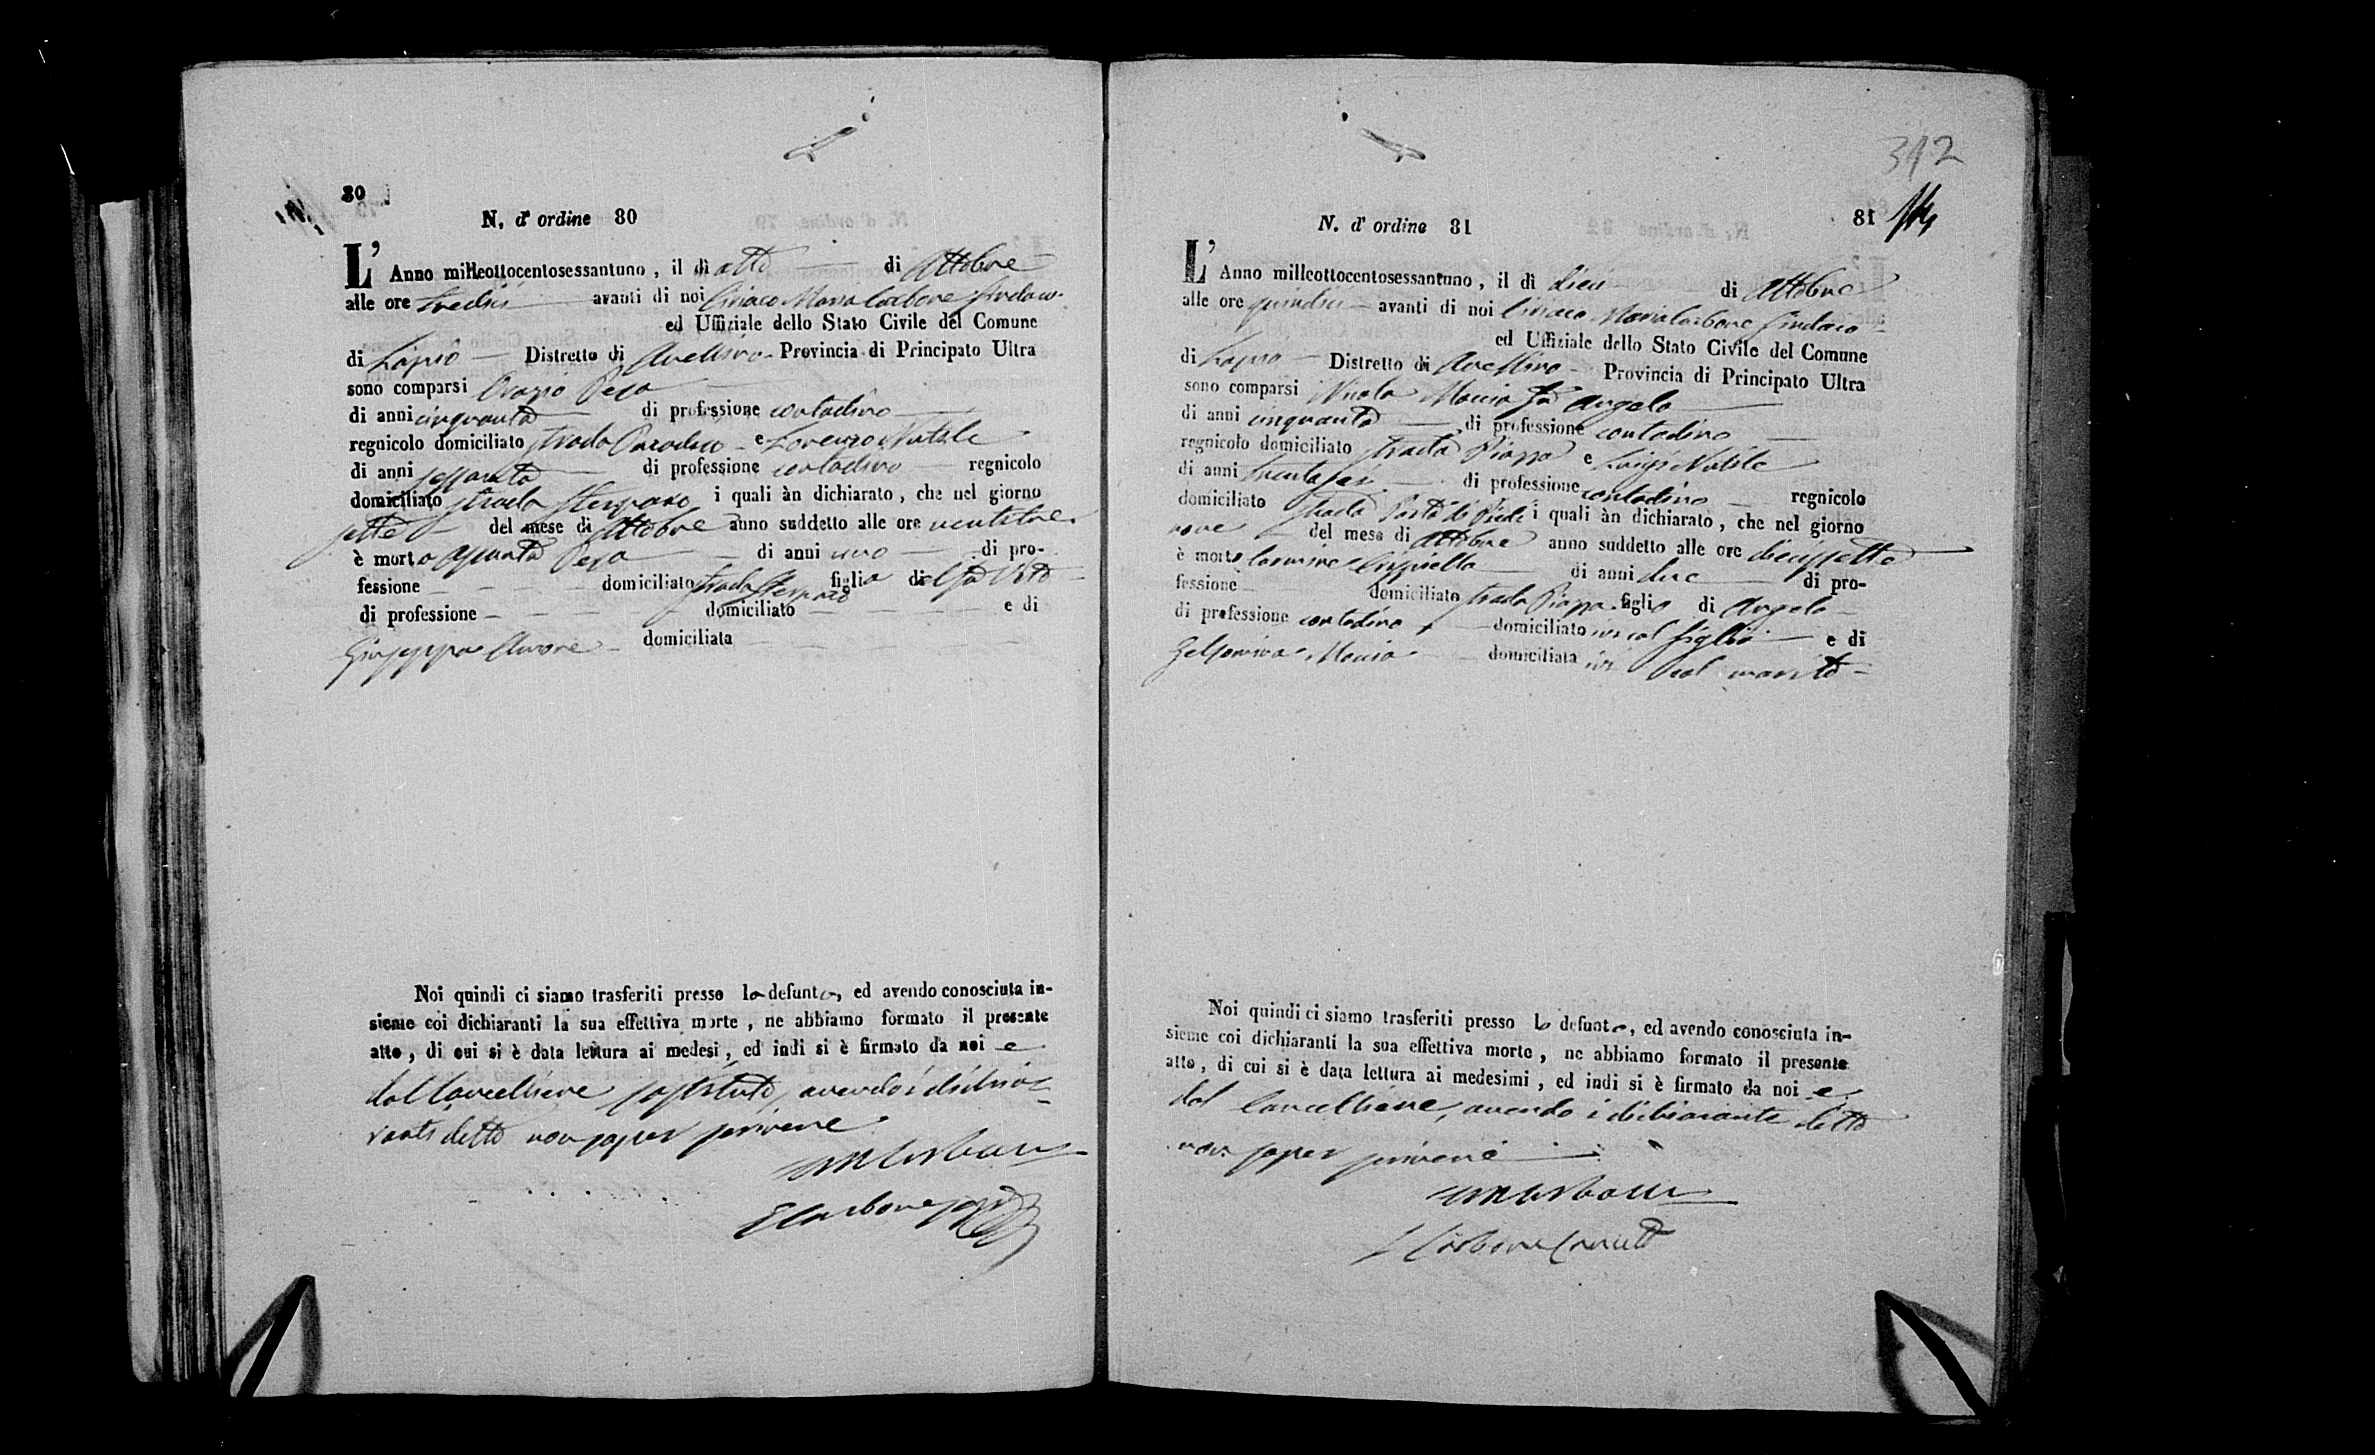 80
N. d' ordine 80
L' Anno milleottocentosessantuno, il dì otto di Ottobre
alle ore tredici avanti di noi Ciriaco Maria Carbone Sindaco
ed Uffiziale dello Stato Civile del Comune
di Lapio Distretto di Avellino Provincia di Principato Ultra
sono comparsi Orazio Pepa
di anni cinquanta di professione contadino
regnicolo domiciliato strada e Lorenzo Nutile
di anni sessanta di professione contadino regnicolo
domiciliato strada i quali àn dichiarato, che nel giorno
sette del mese di Ottobre anno suddetto alle ore ventitre
è morta Assunta Pepa di anni uno di pro-
fessione domiciliato strada figlia del fu Vito
di professione domiciliato e di
Giuseppa domiciliata
Noi quindi ci siamo trasferiti presso la defunta, ed avendo conosciuta in-
sieme coi dichiaranti la sua effettiva morte, ne abbiamo formato il presente
atto, di cui si è data lettura ai medesi, ed indi si è firmato da noi e
dal Cancelliere sostituto, avendo i dichia-
ranti detto non saper scrivere
CM Carbone
Carbone
312
81
N. d' ordine 81
L' Anno milleottocentosessantuno, il dì dieci di Ottobre
alle ore quindici avanti di noi Ciriaco Maria Carbone Sindaco
ed Uffiziale dello Stato Civile del Comune
di Lapio Distretto di Avellino Provincia di Principato Ultra
sono comparsi Nicola Maria fu Angelo
di anni cinquanta di professione contadino
regnicolo domiciliato strada Piazza e Luigi Nutile
di anni trentasei di professione contadino regnicolo
domiciliato strada Porta di Piedi i quali àn dichiarato, che nel giorno
nove del mese di Ottobre anno suddetto alle ore diecissette
è morto Carmine di anni due di pro-
fessione domiciliato strada Piazza figlio di Angelo
di professione contadino domiciliato ivi col figlio e di
Gelsomina domiciliata ivi col marito
Noi quindi ci siamo trasferiti presso lo defunto, ed avendo conosciuta in-
sieme coi dichiaranti la sua effettiva morte, ne abbiamo formato il presente
atto, di cui si è data lettura ai medesimi, ed indi si è firmato da noi e
dal Cancelliere, avendo i dichiarante detto
non saper scrivere
CM Carbone
Carbone